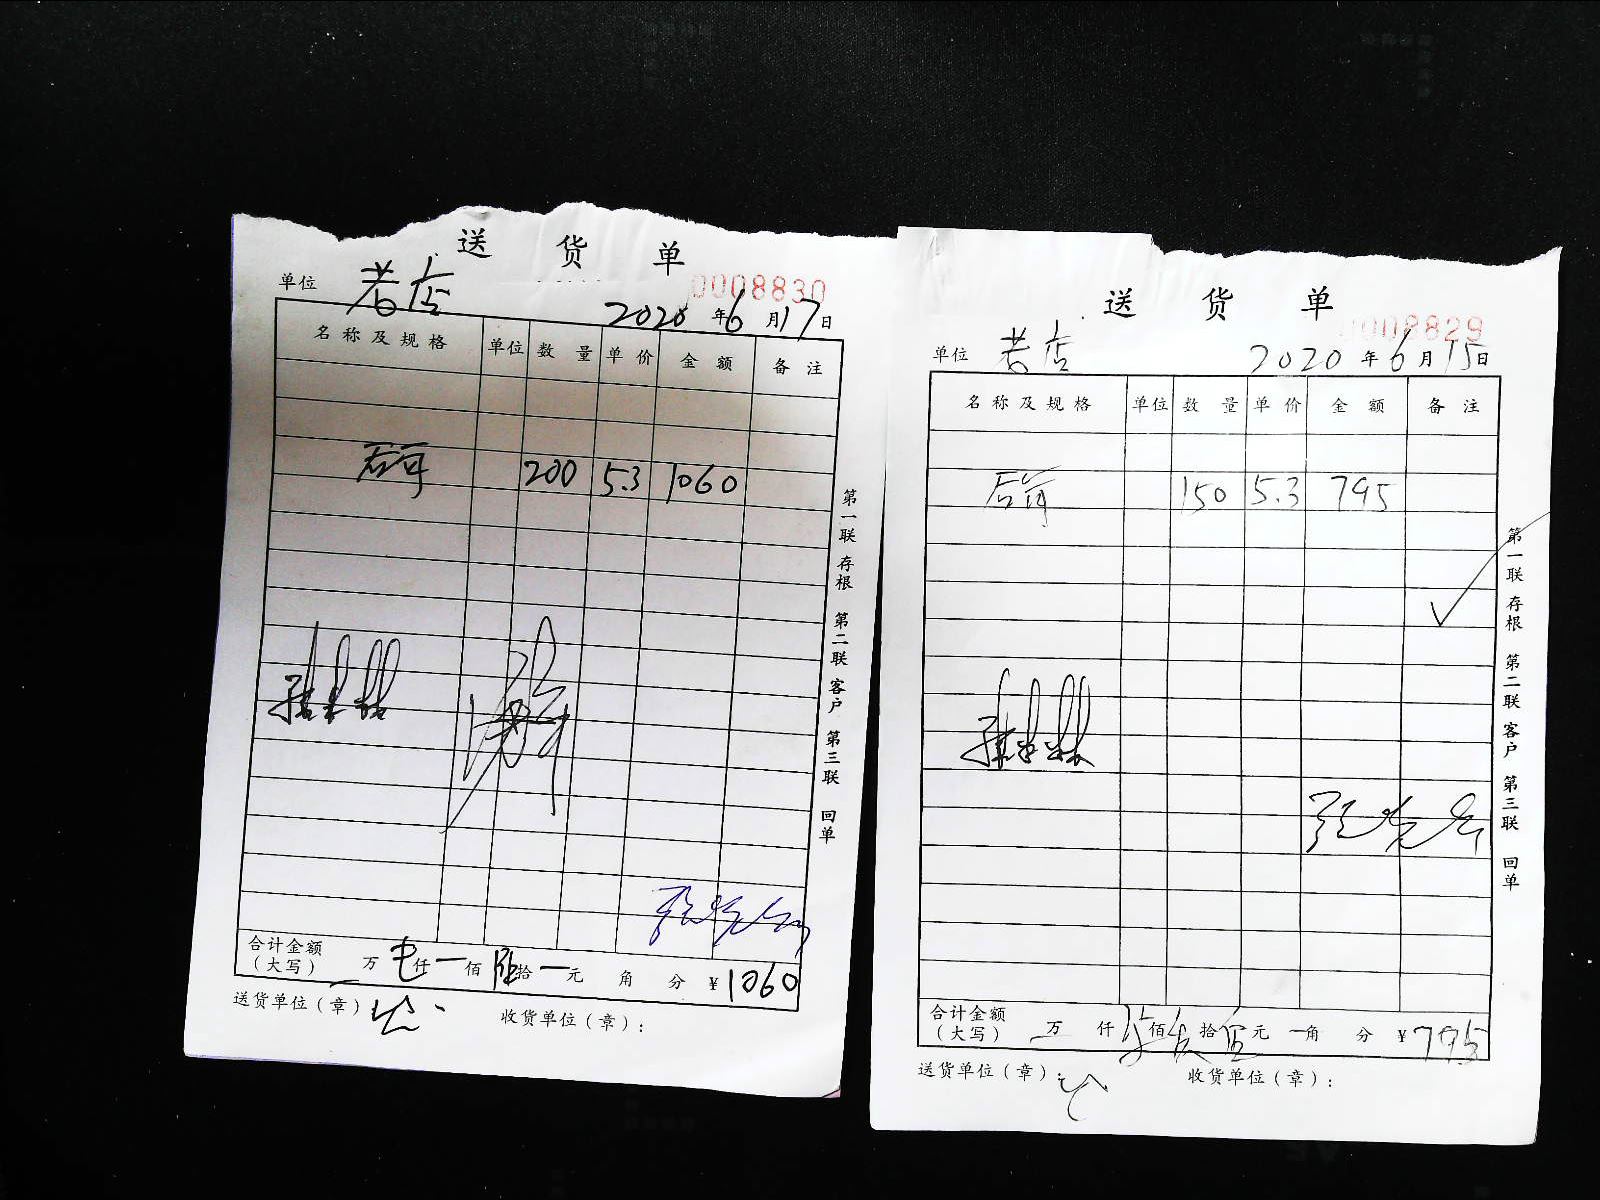 送 货 单
0008830
单位 老店 2020 年 6 月 17 日
名称及规格 单位 数量 单价 金额 备注
200 5.3 1060
第一联 存根 第二联 客户 第三联 回单
合计金额(大写) 万 仟 佰 拾 元 角 分 ¥ 1060
送货单位(章): 收货单位(章):
送 货 单
0008829
单位 老店 2020 年 6 月 15 日
名称及规格 单位 数量 单价 金额 备注
150 5.3 795
第一联 存根 第二联 客户 第三联 回单
合计金额(大写) 万 仟 佰 拾 伍 元 角 分 ¥ 795
送货单位(章): 收货单位(章):